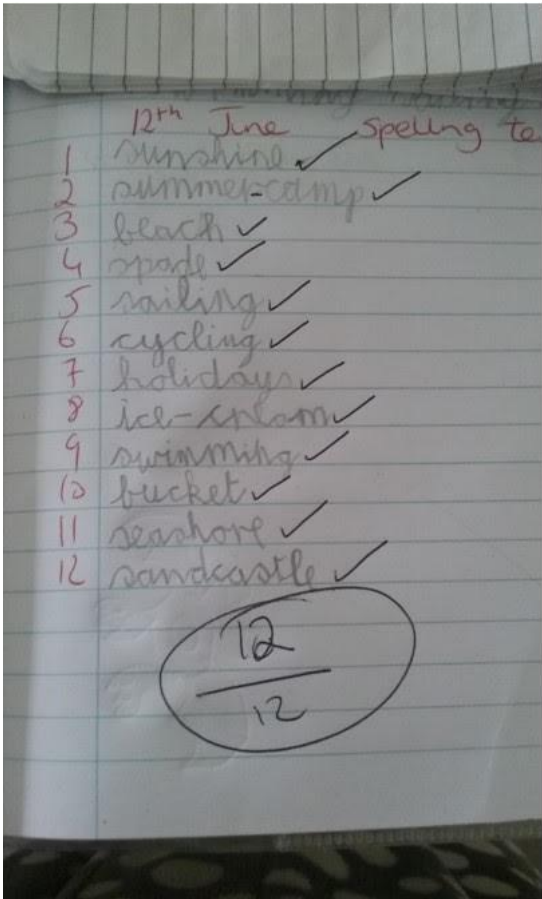 12th June Spelling te
1 sunshine
2 summer-camp
3 beach
4 spade
5 sailing
6 cycling
7 holidays
8 ice-cream
9 swimming
10 bucket
11 seashore
12 sandcastle
12
12